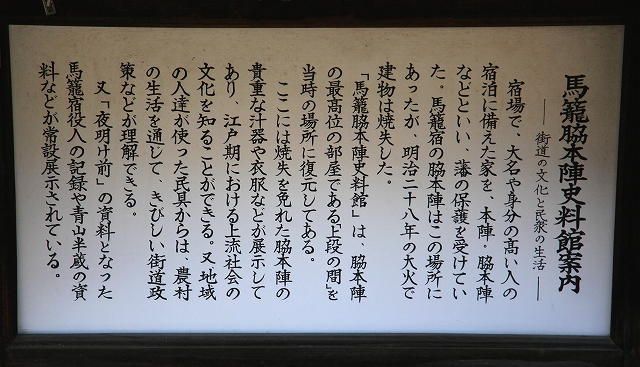 馬籠脇本陣史料館案内
―― 街道の文化と民衆の生活 ――
宿場で、大名や身分の高い人の
宿泊に備えた家を、本陣・脇本陣
などといい、藩の保護を受けてい
た。馬籠宿の脇本陣はこの場所に
あったが、明治二十八年の大火で
建物は焼失した。
「馬籠脇本陣史料館」は、脇本陣
の最高位の部屋である「上段の間」を
当時の場所に復元してある。
ここには焼失を免れた脇本陣の
貴重な汁器や衣服などが展示して
あり、江戸期における上流社会の
文化を知ることができる。又地域
の人達が使った民具からは、農村
の生活を通して、きびしい街道政
策などが理解できる。
又「夜明け前」の資料となった
馬籠宿役人の記録や青山半蔵の資
料などが常設展示されている。